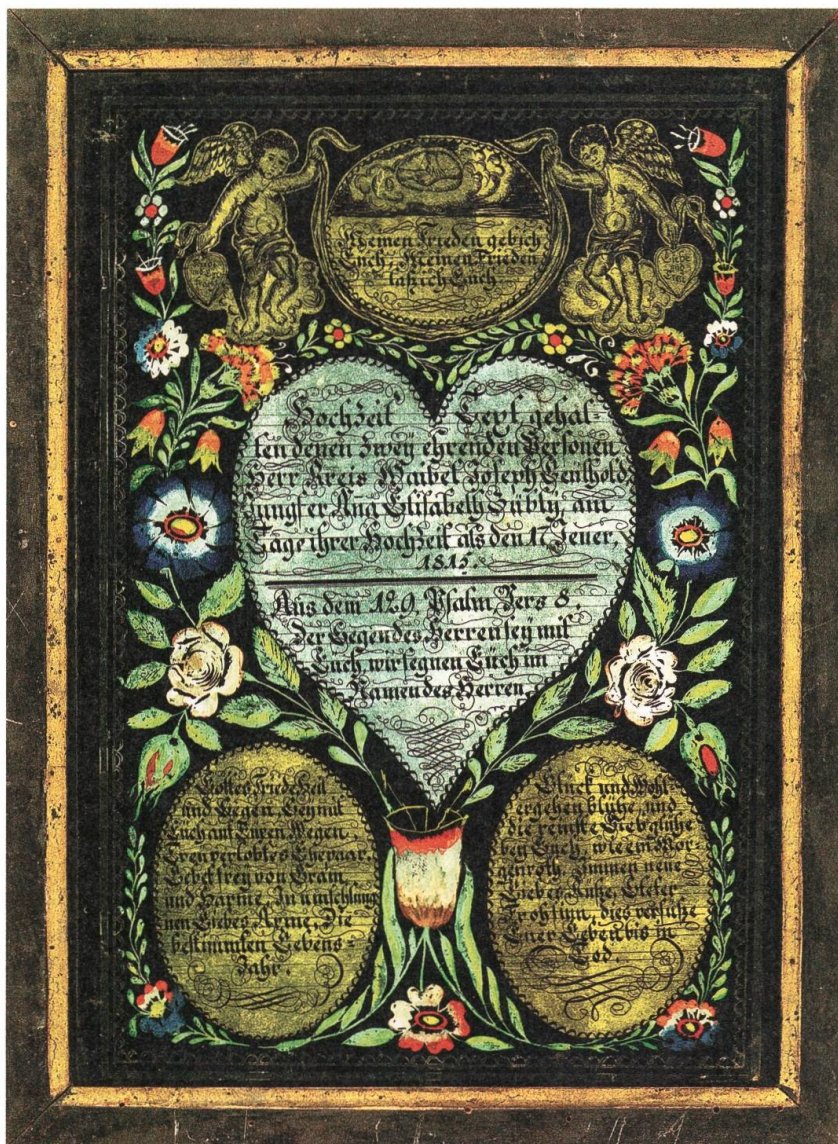 Meinen Frieden geb ich
Euch. Meinen Frieden
laß ich Euch
Liebe
und
Hochzeit Text gehal-
ten denen zwey ehrenden Personen
Herr Kreis Waibel Joseph Leuthold
Jungfer Ana Elisabeth Hübly, am
Tage ihrer Hochzeit als den 17 Jener.
1815.
Aus dem 129. Psalm Vers 8.
Der Segen des Herren sey mit
Euch wir segnen Euch im
Namen des Herren.
Gottes Friede Heil
und Segen, Sey mit
Euch auf Euren Wegen.
Treu verlobtes Ehepaar.
Lebet frey von Gram
und Harme, In umschlung
nen Liebes Arme, Die
bestimmten Lebens=
Jahr.
Glück und Wohl
ergehen blühe, und
die reinste Lieb glühe
bey Euch, wie ein Mor-
genroth, Immer neue
Liebes Küße, Steter
Frohsinn, dies versüße
Euer Leben bis in
Tod.